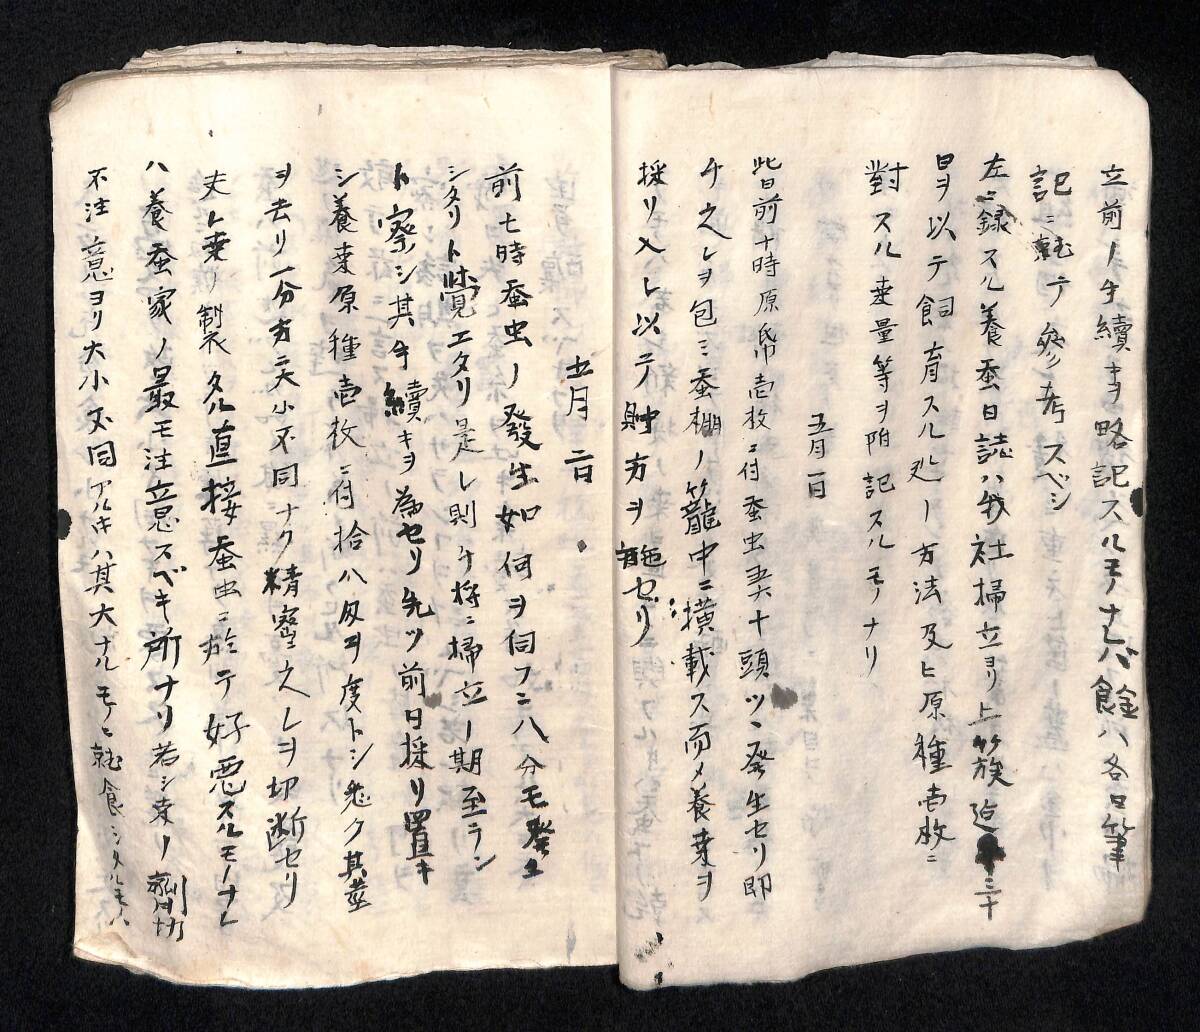 立前ノ手續キヲ略記スルモノナレバ餘ハ各口筆
記ニ就テ參考スベシ
左ニ録スル養蚕日誌ハ我社掃立ヨリ上簇迠三十
日ヲ以テ飼育スル処ノ方法及ヒ原種壱枚ニ
對スル桒量等ヲ附記スルモノナリ
五月一日
此日前十時原帋壱枚ニ付蚕虫五六十頭ツヽ発生セリ即
チ之レヲ包ミ蚕棚ノ籠中ニ横載ス而メ養桒ヲ
採リ入レ以テ貯方ヲ施セリ
五月二日
前七時蚕虫ノ發生如何ヲ伺フニ八分モ發生
シタリト覚エタリ是レ則チ将ニ掃立ノ期至ラン
ト察シ其手續キヲ為セリ先ツ前日採リ置キ
シ養桒原種壱枚ニ付拾八匁ヲ度トシ悉ク其莖
ヲ去リ一分方ニ大小不同ナク精密之レヲ切断セリ
夫レ桒ノ製タル直接蚕虫ニ於テ好悪スルモノナレ
ハ養蚕家ノ最モ注意スベキ所ナリ若シ桒ノ剉切
不注意ヨリ大小不同アルキハ其大ナルモノニ就食シタルモノハ